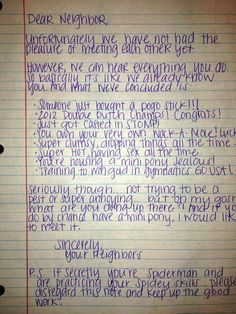 Dear Neighbor,
Unfortunately we have not had the
pleasure of meeting each other yet.
However, we can hear everything you do
so basically it's like we already know
you. And what we've concluded is
· Someone just bought a pogo stick!!!
· 2012 Double Dutch Champs! Congrats!
· Just got casted in STOMP!
· You own your very own Wack-A-Mole!
· Super clumsy, dropping things all the time.
· Super hot, having sex all the time.
· You're housing a mini pony. Jealous!
· Training to win gold in gymnastics. Go USA!
Seriously though... not trying to be a
pest or super annoying... but oh my gosh
what are you doing up there? And if you
do by chance have a mini pony, I would like
to meet it.
Sincerely,
Your Neighbors
P.S. If secretly you're spiderman and
are practicing your spidey skills... please
disregard this note and keep up the good
work!